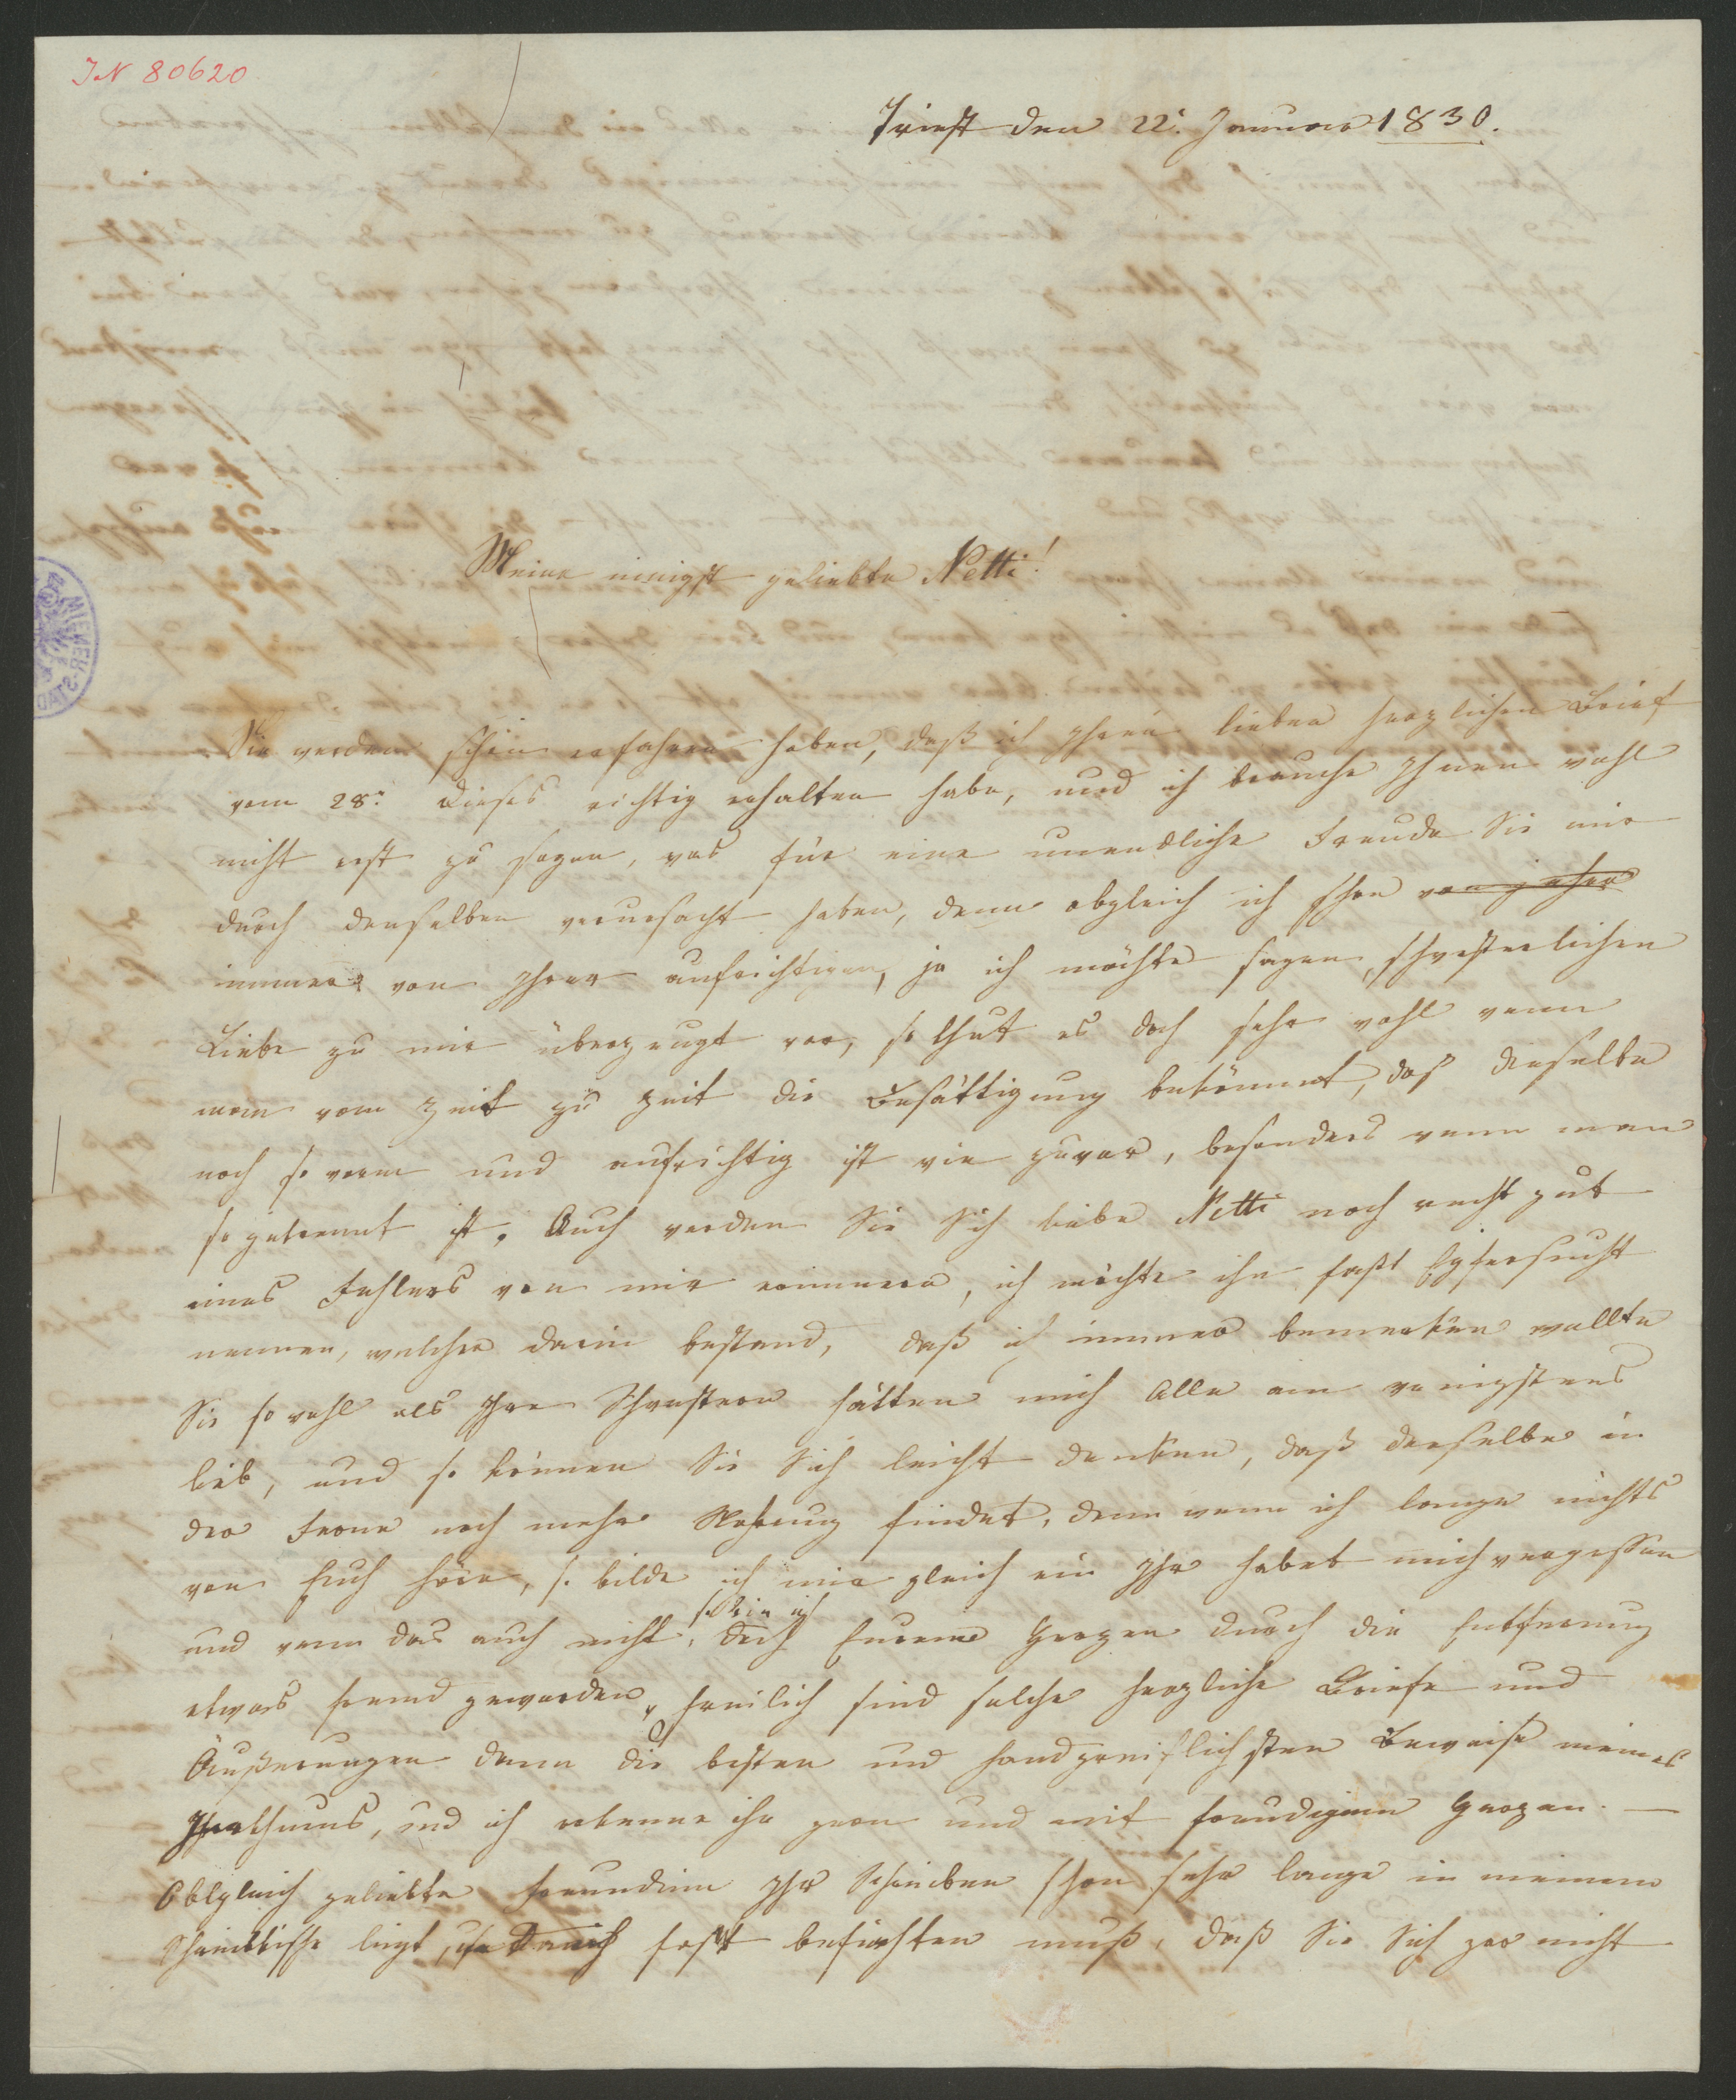 IN 80620
Triest den 22: Januar 1830.
Meine innigst geliebte Netti!
Sie werden schon erfahren haben, daß ich Ihren lieben herzlichen Brief
vom 28: dieses richtig erhalten habe, und ich brauche Ihnen wohl
nicht erst zu sagen, was für eine unendliche Freude Sie mir
durch denselben verursacht haben, denn obgleich ich schon von jeher
immer von Ihrer aufrichtigen, ja ich möchte sagen, schwesterlichen
Liebe zu mir überzeugt war, so thut es doch sehr wohl wenn
man vom Zeit zu Zeit die Bestättigung bekömmt, daß dieselbe
noch so warm und aufrichtig ist wie zuvor, besonders wenn man
so getrennt ist. Auch werden Sie Sich liebe Netti noch recht gut
eines Fehlers von mir erinnern, ich möchte ihn fast Eyfersucht
nennen, welcher darin bestand, daß ich immer bemerken wollte
Sie sowohl als Ihre Schwestern hätten mich Alle am wenigstens
lieb, und so können Sie Sich leicht denken, daß derselbe in
der Ferne noch mehr Nahrung findet, denn wenn ich lange nichts
von Euch höre, so bilde ich mir gleich ein Ihr habet mich vergessen
so bin ich
und wenn das auch nicht, doch Eurem Herzen durch die Entfernung
etwas fremd geworden, freilich sind solche herzliche Briefe und
Äußerungen dann die besten und handgreiflichsten Beweise meines
Irrthums, und ich erkenne ihn gern und mit freudigem Herzen. —
Obgleich geliebte Freundinn Ihr Schreiben schon sehr lange in meinem
Schreibtische liegt, fast befürchten muß, daß Sie Sich gar nicht